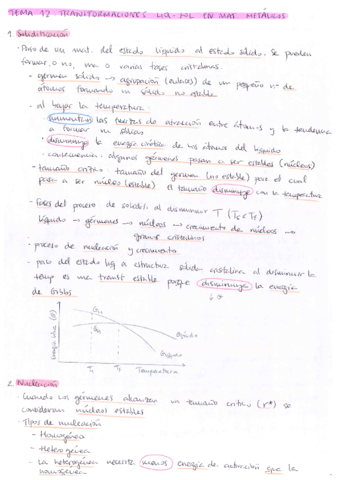 TEMA 12: TRANSFORMACIONES LIQ-SOL EN MAT. METÁLICOS
1. Solidificación
· Paso de un mat. del estado líquido al estado sólido. Se pueden
formar, o no, una o varias fases cristalinas.
- germen sólido → agrupación (enlaces) de un pequeño nº de
átomos formando un sólido no estable
- al bajar la temperatura:
· aumentan las fuerzas de atracción entre átomos y la tendencia
a formar un sólido
· disminuye la energía cinética de los átomos del líquido
· consecuencia: algunos gérmenes pasan a ser estables (núcleos)
- tamaño crítico: tamaño del germen (no estable) para el cual
pasa a ser núcleo (estable). El tamaño disminuye con la temperatura
- Fases del proceso de solidif. al disminuir T (Tc < TF)
líquido → gérmenes → núcleos → crecimiento de núcleos →
granos cristalinos
- proceso de nucleación y crecimiento
- paso del estado liq a estructura sólida cristalina al disminuir la
temp es una transf. estable porque disminuye la energía
de Gibbs
Energía libre (G)
T1 TF Temperatura
Gsólido
Glíquido
2. Nucleación
· Cuando los gérmenes alcanzan un tamaño crítico (r*) se
consideran núcleos estables
· Tipos de nucleación
- Homogénea
- Heterogénea
- La heterogénea necesita menos energía de activación que la
homogénea